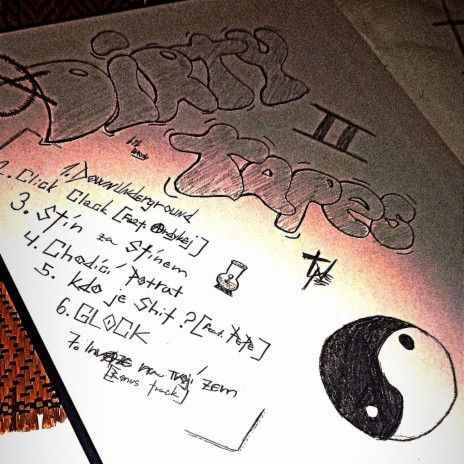 Dirty
II
Tapes
1. DownUnderground
2. Click Clack [Feat.
3. Stín za Stínem
4. Chodící Potrat
5. Kdo je Shit? [Feat. PePe]
6. GLOCK
7. na tvojí zem
[Bonus track]